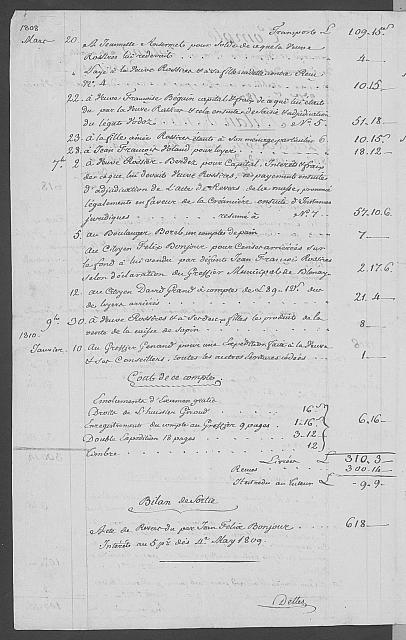 1808 Transports £ 109.15
Mars 20. à Jeannette Ansermet pour Solde de ce que la Veuve
Rossires lui redevoit 4.—
Payé à la Veuve Rossires et à sa fille cadette contre Reçu
N° 4. 10.15
22. à Veuve Françoise Béguin capital et frais de ce qui lui étoit
du par la Veuve Rossires et ensuite de saisie et d'adjudication
du légat Verdoz N° 5. 51.18
23. à la fille ainée Rossires étant à son ménage particulier 6 10.15
28. à Jean François Volaud pour loyer 18.12
7bre 2. à Veuve Rossier Cerdez pour Capital, Intérêt et frais
de ce que lui devoit Veuve Rossires, ce payement ensuite
d'adjudication de l'acte de Revers de la masse, prononcé
légalement en faveur de la Créancière ensuite d'Instances
juridiques N° 7 57.10.6
5. au Boulanger Borel à comptes de pain 7—
au Citoyen Felix Bonjour pour Censes arriérées sur
le fond à lui vendu par défunt Jean François Rossires
selon déclaration du Greffier Municipal de Blonay 2.17.6
12. au Citoyen David Grand à comptes de £ 39.12s. dus
de loyers arriérés 21.4—
9bre 30. à Veuve Rossires et à ses deux filles le produit de la
vente de la cuisse de sapin 8—
1810
Janvier 10. Au Greffier Genand pour une Expédition faite à la Veuve
et ses Conseillers, toutes les autres écritures cédées 1—
Cout de ce compte
Emoluments d'Examen gratis
Droits de l'huissier Genand 16s
Enregistrement du compte au Greffier 9 pages 1-16 6,16—
Double Expedition 18 pages 3-12
Timbre 12
Livrées £ 310.3—
Remis 300.14—
Est redu au Tuteur £ —9.9—
Bilan de Sortie
Acte de Revers du par Jean Felix Bonjour 618—
Intérêts au 5 p% dès 4e May 1809.